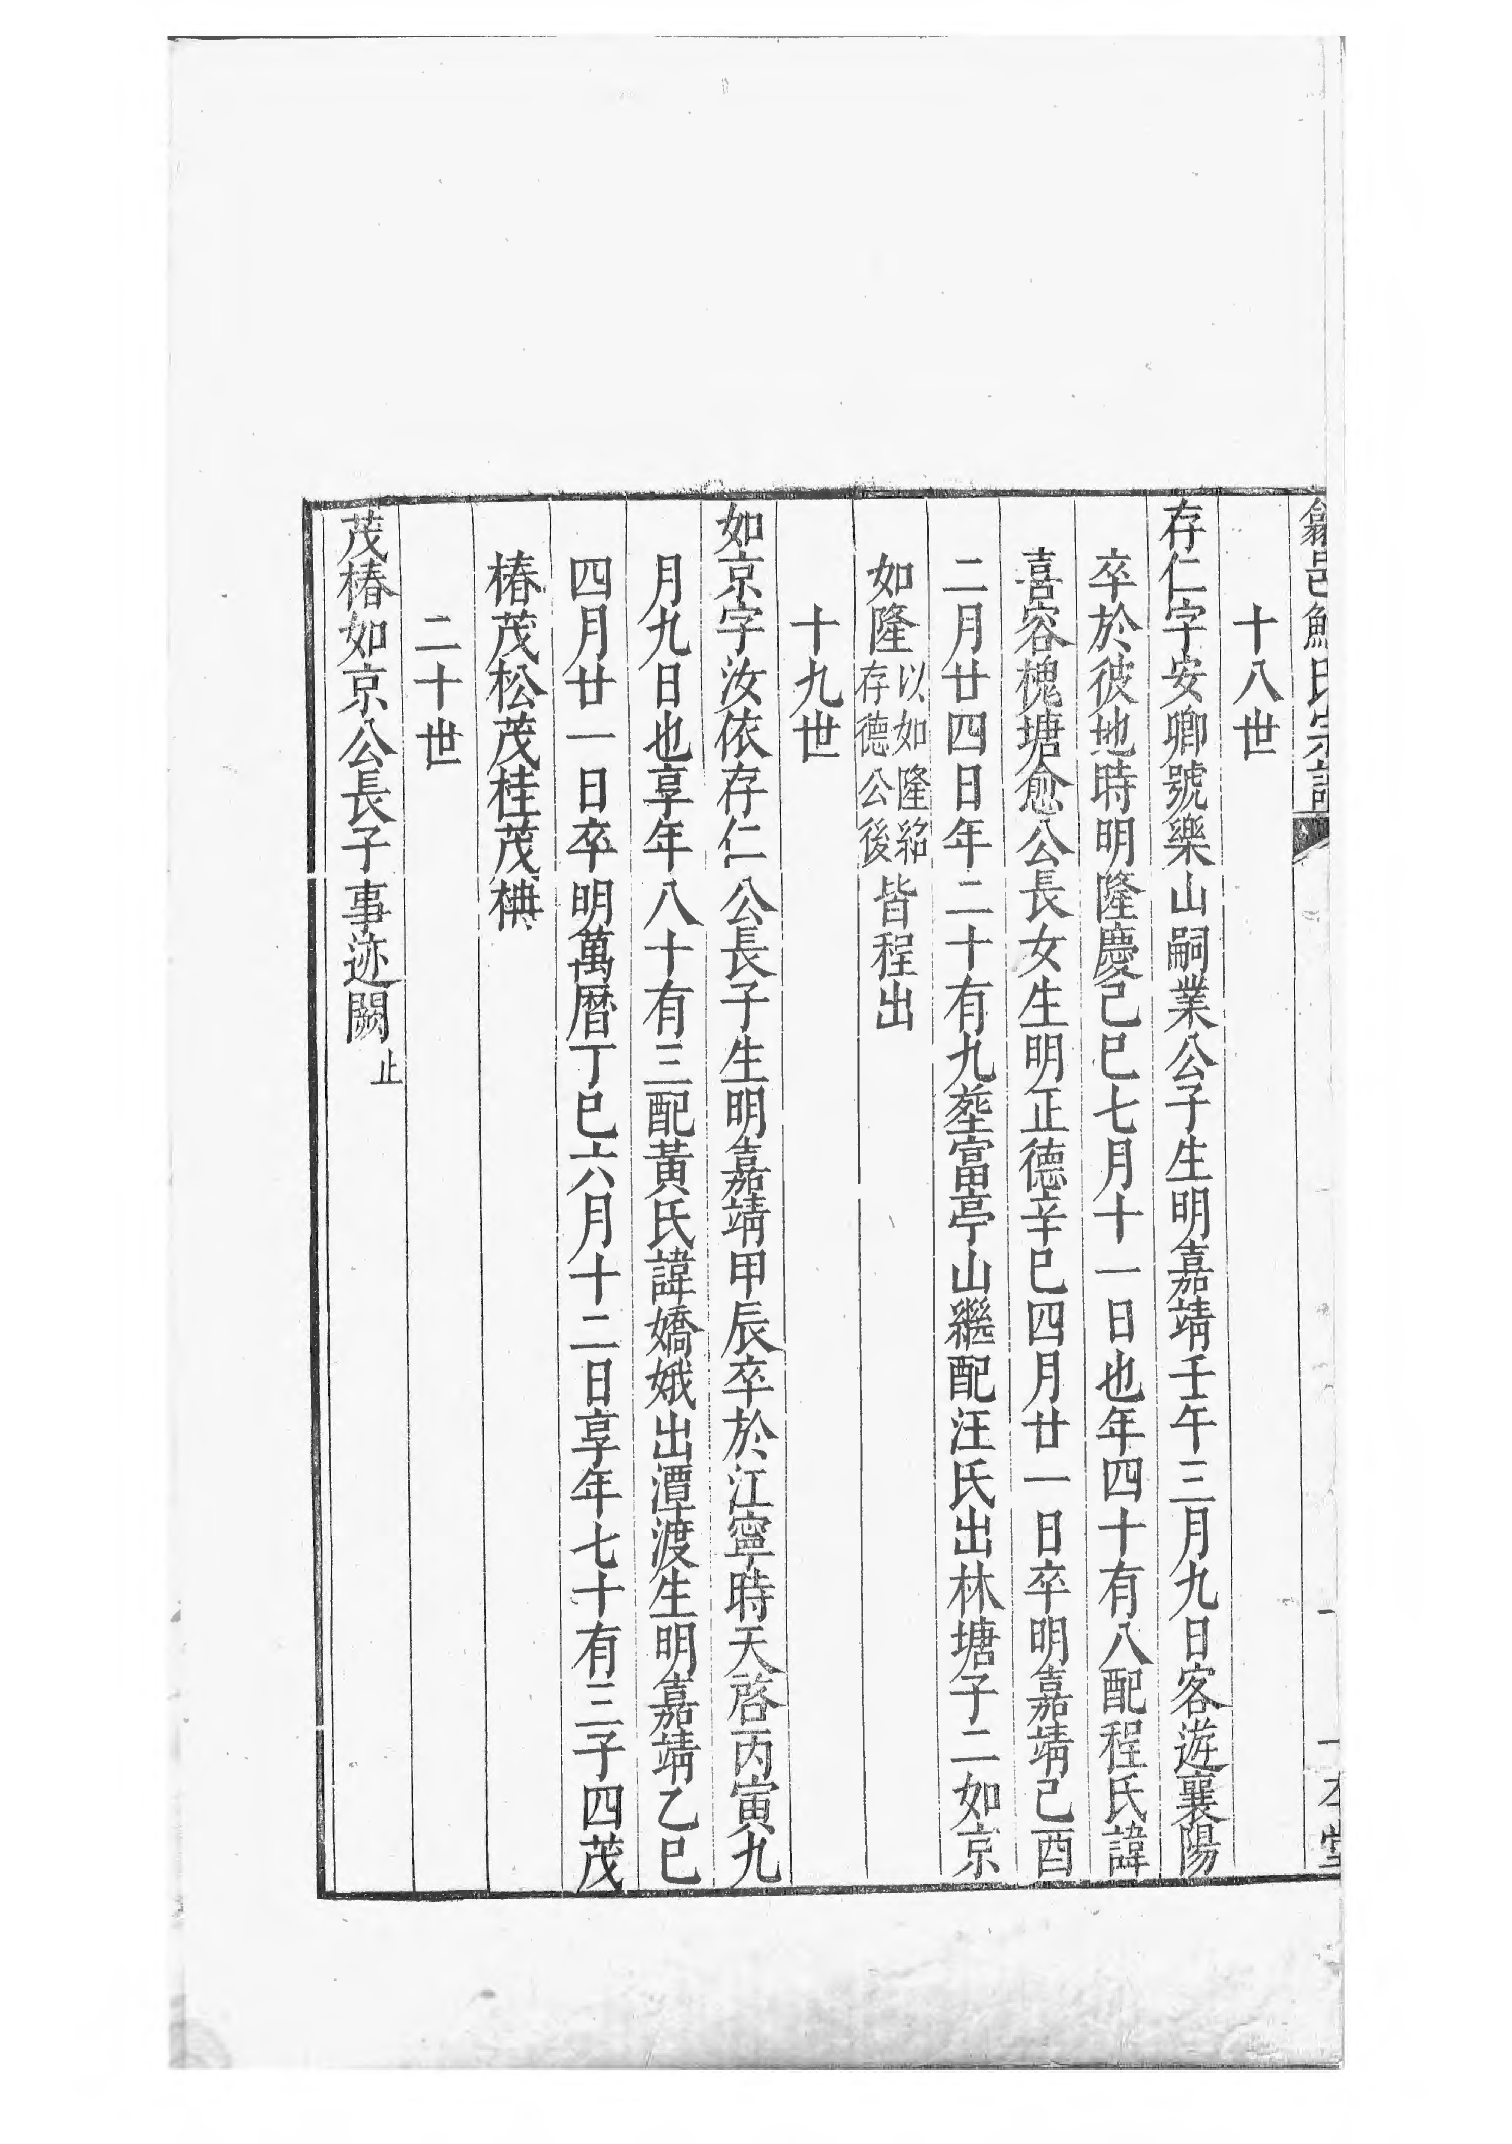 歙邑鮑氏宗譜
一本堂
十八世
存仁字安卿號樂山嗣業公子生明嘉靖壬午三月九日客遊襄陽
卒於彼地時明隆慶己巳七月十一日也年四十有八配程氏諱
喜容槐塘愈公長女生明正德辛巳四月廿一日卒明嘉靖己酉
二月廿四日年二十有九塟富亭山繼配汪氏出林塘子二如京
如隆以如隆紹存德公後皆程出
十九世
如京字汝依存仁公長子生明嘉靖甲辰卒於江寧時天啓丙寅九
月九日也享年八十有三配黃氏諱嬌娥出潭渡生明嘉靖乙巳
四月廿一日卒明萬曆丁巳六月十二日享年七十有三子四茂
椿茂松茂桂茂㮏
二十世
茂椿如京公長子事迹闕止